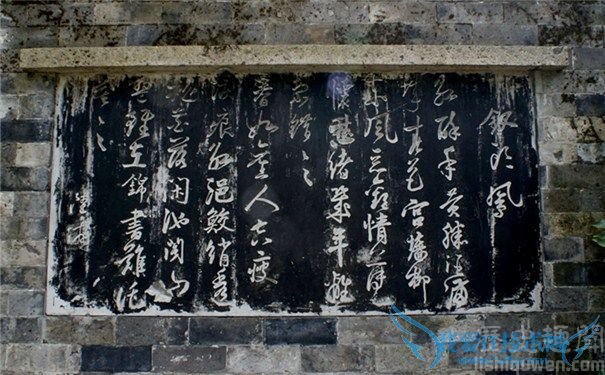 釵頭鳳
紅酥手黃縢酒滿
城春色宮墻柳
東風惡歡情薄一
懷愁緒幾年離
索錯〻
春如舊人空瘦
淚痕紅浥鮫綃透
桃花落閑池閣山
盟雖在錦書難託
莫〻〻
lishiquwen.com